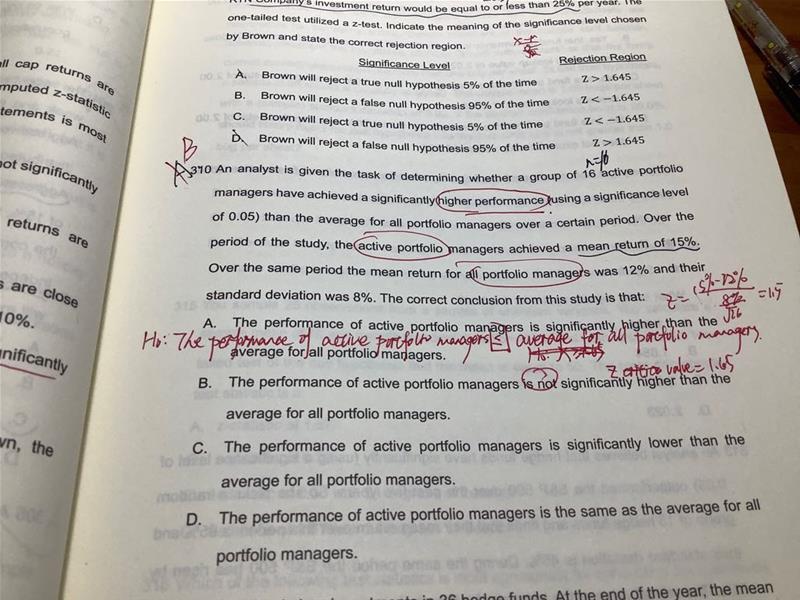 Company's investment return would be equal to or less than 25% per year. The
one-tailed test utilized a z-test. Indicate the meaning of the significance level chosen
by Brown and state the correct rejection region.
Significance Level Rejection Region
A. Brown will reject a true null hypothesis 5% of the time Z > 1.645
B. Brown will reject a false null hypothesis 95% of the time Z < −1.645
C. Brown will reject a true null hypothesis 5% of the time Z < −1.645
D. Brown will reject a false null hypothesis 95% of the time Z > 1.645
B
n=16
310 An analyst is given the task of determining whether a group of 16 active portfolio
managers have achieved a significantly higher performance (using a significance level
of 0.05) than the average for all portfolio managers over a certain period. Over the
period of the study, the active portfolio managers achieved a mean return of 15%.
Over the same period the mean return for all portfolio managers was 12% and their
standard deviation was 8%. The correct conclusion from this study is that:
Z = 15%-12% / 8% / √16 = 1.5
A. The performance of active portfolio managers is significantly higher than the
H0: The performance of active portfolio managers ≤ average for all portfolio managers.
average for all portfolio managers.
Z critical value = 1.65
B. The performance of active portfolio managers is not significantly higher than the
average for all portfolio managers.
C. The performance of active portfolio managers is significantly lower than the
average for all portfolio managers.
D. The performance of active portfolio managers is the same as the average for all
portfolio managers.
in 26 hedge funds. At the end of the year, the mean
all cap returns are
computed z-statistic
statements is most
not significantly
returns are
s are close
10%.
gnificantly
wn, the